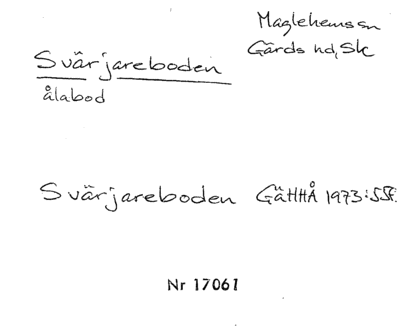 Maglehems sn
Gärds hd, Sk
Svärjareboden
ålabod
Svärjareboden GäHHÅ 1973: 55f.
Nr 17061